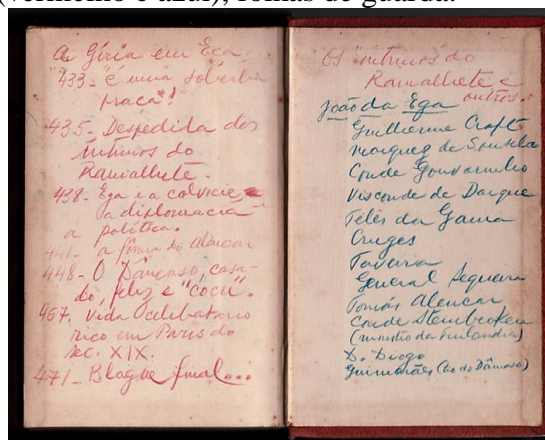 (vermelho e azul), folhas de guarda.
A Gíria em Eça.
433 - "É uma soberba
praça"!
435 - Despedida dos
íntimos do
Ramalhete.
438 - Ega e a calvície,
a diplomacia
a política.
441 - a fama do Alencar
448 - O Dâmaso, casa-
do, feliz e "cocu".
467. Vida celibatário
rico em Paris do
sec. XIX.
471 - Blague final...
Os íntimos do
Ramalhete e
outros.
João da Ega
Guilherme Craft
Marquez de Souzela
Conde Gouvarinho
Visconde de Darque
Teles da Gama
Cruges
Taveira
General Sequeira
Tomás Alencar
Conde Steinbroken
(ministro da Finlandia)
D. Diogo
Guimarães (tio do Dâmaso)